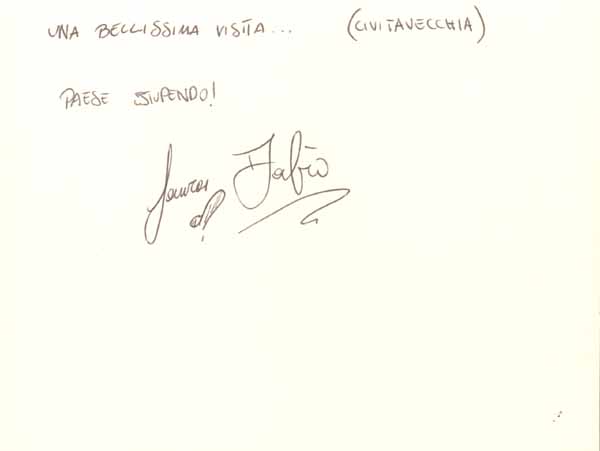 UNA BELLISSIMA VISITA... (CIVITAVECCHIA)
PAESE STUPENDO!
Laura Fabio